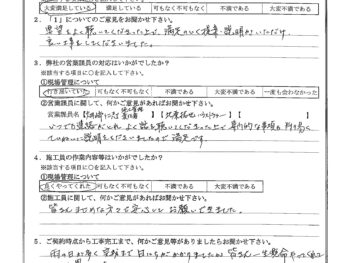 大変満足している 満足している 可も不可もなく 不満である 大変不満である
2.「1」についてのご意見をお聞かせ下さい。
要望をよく聴いてくださった上で、満足のいく提案・説明がいただけ、
良い工事をしてくださいました。
3. 弊社の営業課員の対応はいかがでしたか?
※該当する項目に○を記入して下さい。
①現場管理について
行き届いていた 可も不可もなく 不満である 大変不満である 一度も会わなかった
②営業課員に関して、何かご意見があればお聞かせ下さい。
営業課員名【
いつでも連絡がとれ、よく話を聴いてくださった上、専門的な事項も
ていねいに説明をしてくださったので満足です。
4. 施工員の作業内容等はいかがでしたか?
※該当する項目に○を記入して下さい。
①現場管理について
良くやってくれた 可も不可もなく 不満である 大変不満である
②施工員に関して、何かご意見があればお聞かせ下さい。
皆さんまじめな方々で安心してお願いできました。
5. ご契約時点から工事完工まで、何かご意見等がありましたらお聞かせ下さい。
雨の日が多く完成まで日にちがかかりましたが皆さん一生懸命やって